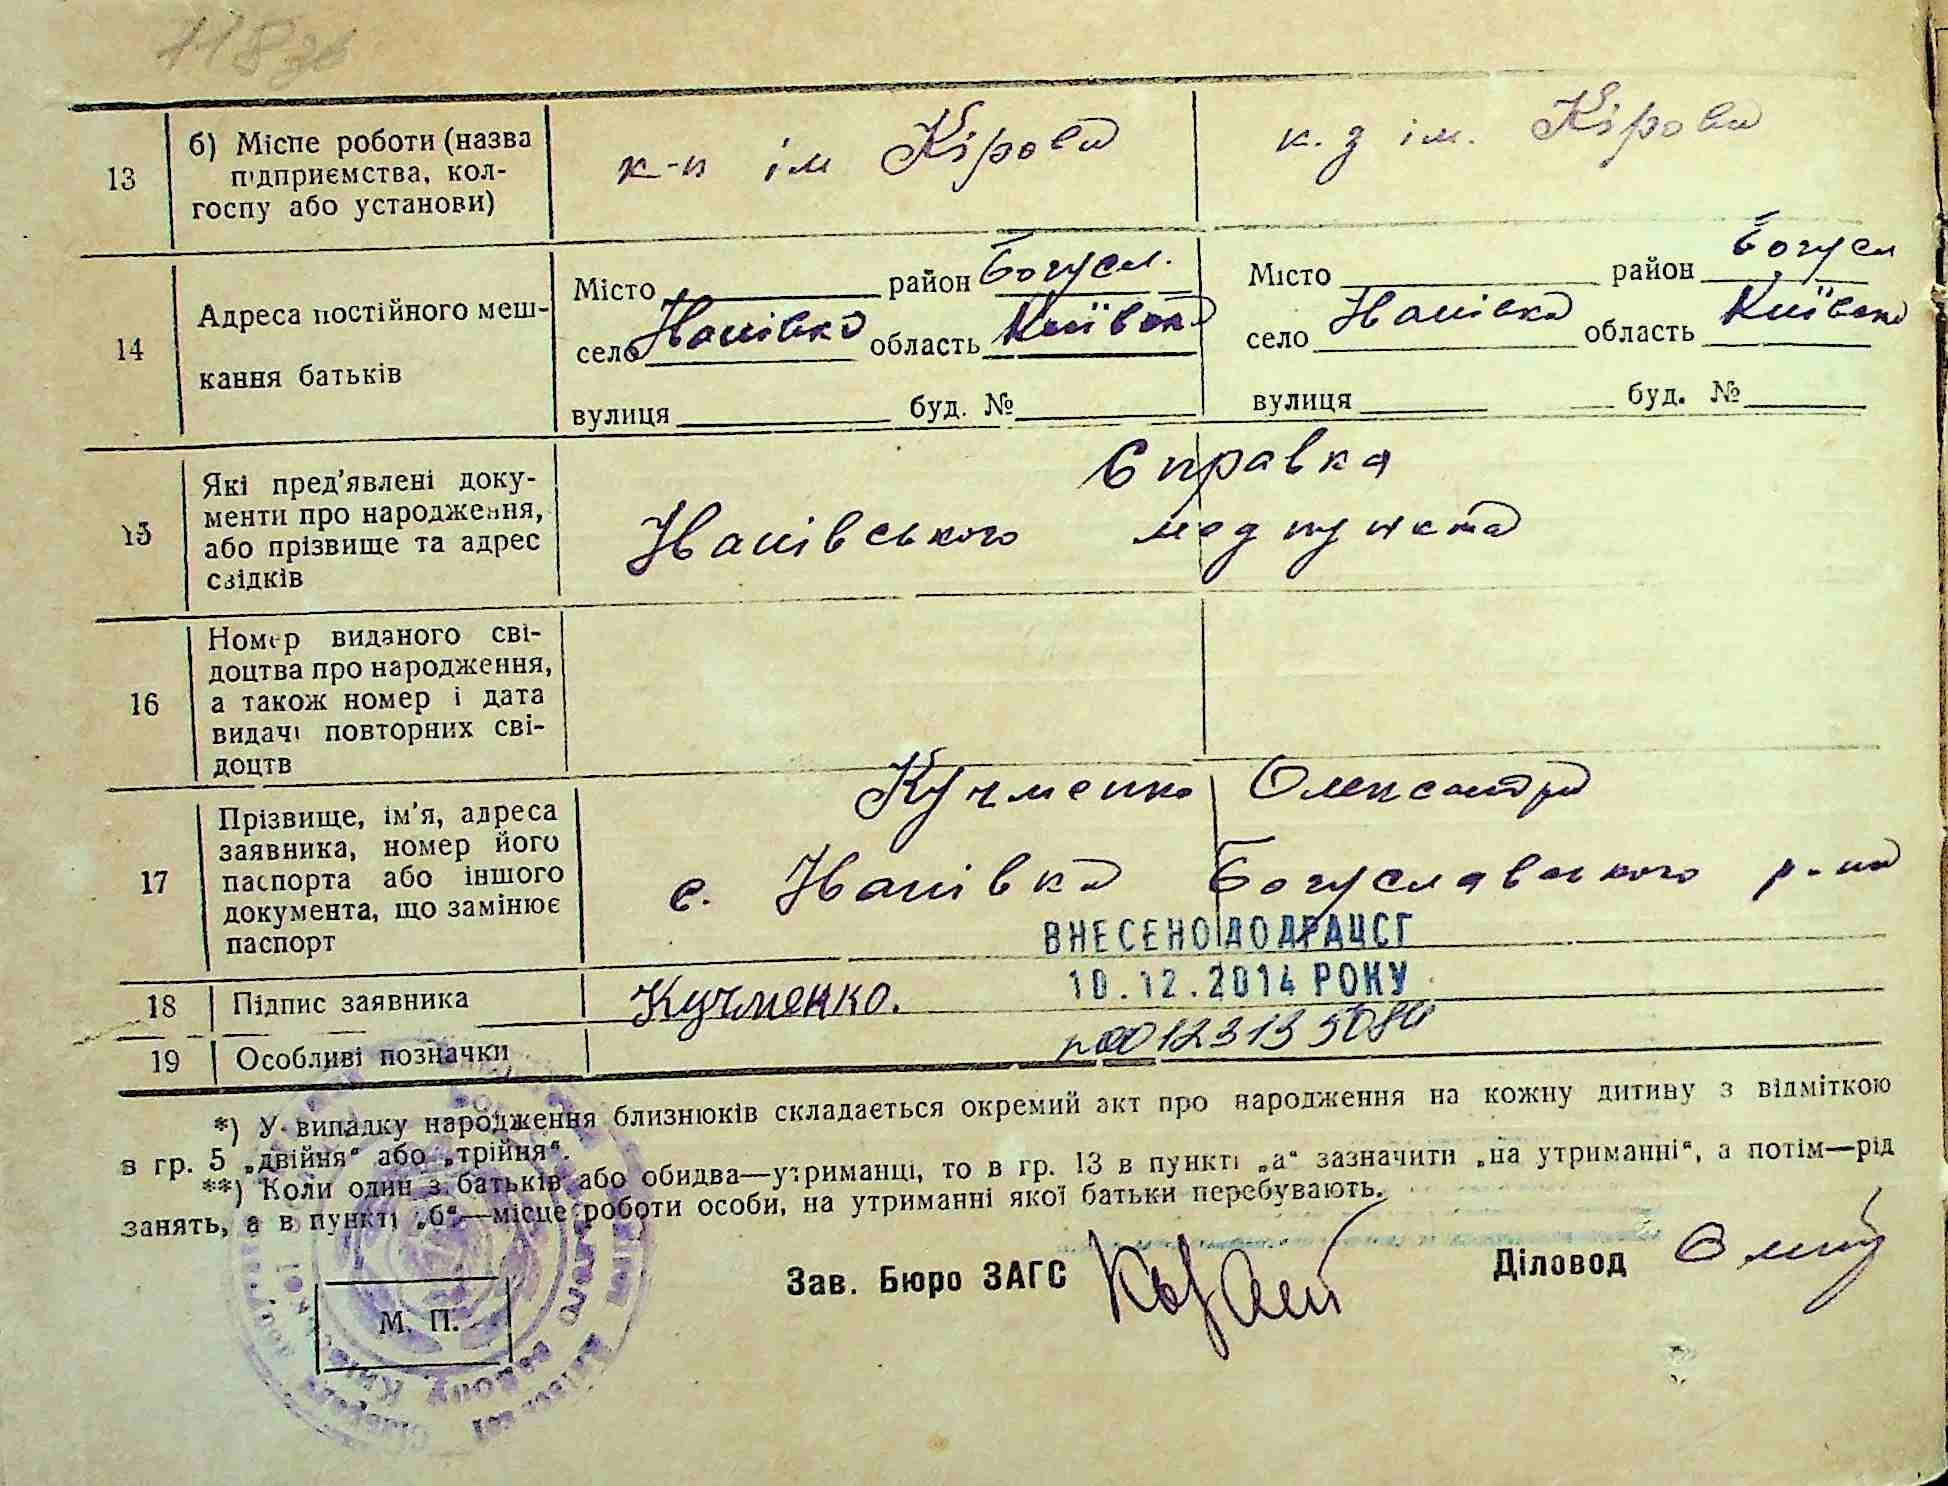 118 зв
13
б) Місце роботи (назва
підприємства, кол-
госпу або установи)
к-п ім Кірова
к. з ім. Кірова
14
Адреса постійного меш-
кання батьків
Місто район Богусл.
село Исаївка область Київськ
вулиця буд. №
Місто район Богусл
село область Київська
вулиця буд. №
15
Які пред'явлені доку-
менти про народження,
або прізвище та адрес
свідків
Справка
медпункта
16
Номер виданого сві-
доцтва про народження,
а також номер і дата
видачі повторних сві-
доцтв
17
Прізвище, ім'я, адреса
заявника, номер його
паспорта або іншого
документа, що замінює
паспорт
Кучменко Олександра
с. Богуславського р-на
ВНЕСЕНО ДО ДРАЦСГ
10.12.2014 РОКУ
18
Підпис заявника
Кучменко.
19
Особливі позначки
*) У випадку народження близнюків складається окремий акт про народження на кожну дитину з відміткою
в гр. 5 „двійня“ або „трійня“.
**) Коли один з батьків або обидва—утриманці, то в гр. 13 в пункті „а“ зазначити „на утриманні“, а потім—рід
занять, а в пункті „б“—місце роботи особи, на утриманні якої батьки перебувають.
Зав. Бюро ЗАГС
Діловод
М. П.